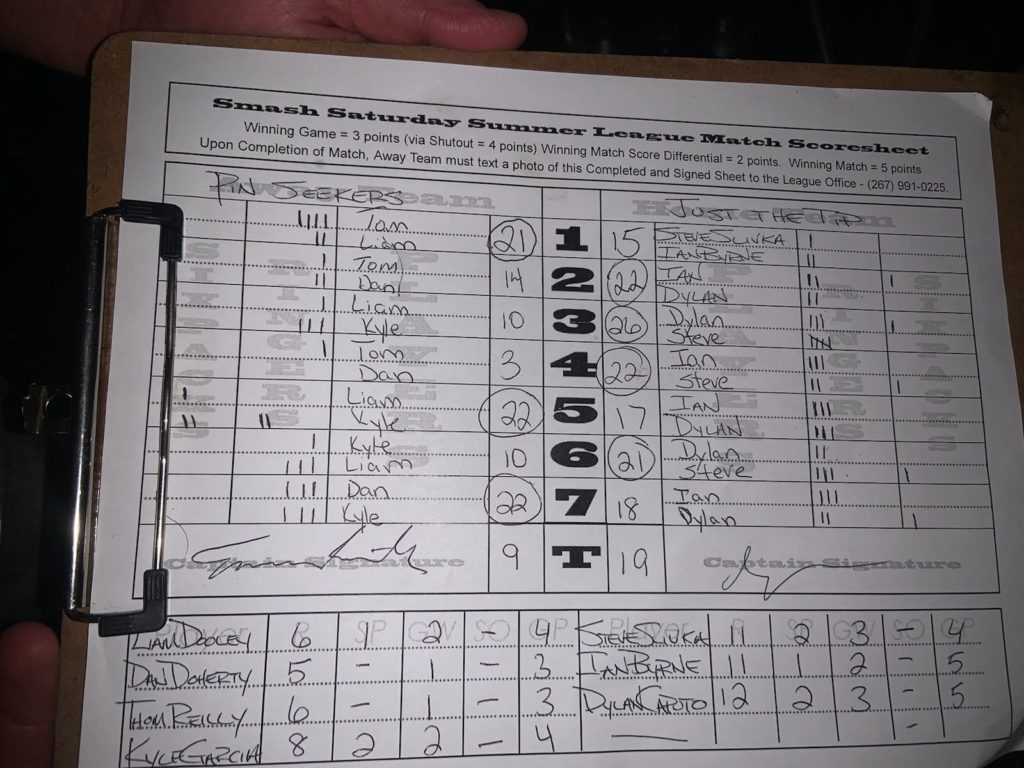 Smash Saturday Summer League Match Scoresheet
Winning Game = 3 points (via Shutout = 4 points) Winning Match Score Differential = 2 points. Winning Match = 5 points
Upon Completion of Match, Away Team must text a photo of this Completed and Signed Sheet to the League Office - (267) 991-0225.
PIN SEEKERS JUST THE TIP
Tom 21 1 15 STEVE SLIVKA
Liam IAN BYRNE
Tom 14 2 22 IAN
Dan DYLAN
Liam 10 3 26 Dylan
Kyle Steve
Tom 3 4 22 Ian
Dan Steve
Liam 22 5 17 IAN
Kyle DYLAN
Kyle 10 6 21 Dylan
Liam Steve
Dan 22 7 18 Ian
Kyle Dylan
Captain Signature 9 T 19 Captain Signature
LIAM DOOLEY 6 1 2 - 4 STEVE SLIVKA 11 2 3 - 4
DAN DOHERTY 5 - 1 - 3 IAN BYRNE 11 1 2 - 5
THOM REILLY 6 - 1 - 3 DYLAN CAPOTO 12 2 3 - 5
KYLE GARCIA 8 2 2 - 4 -